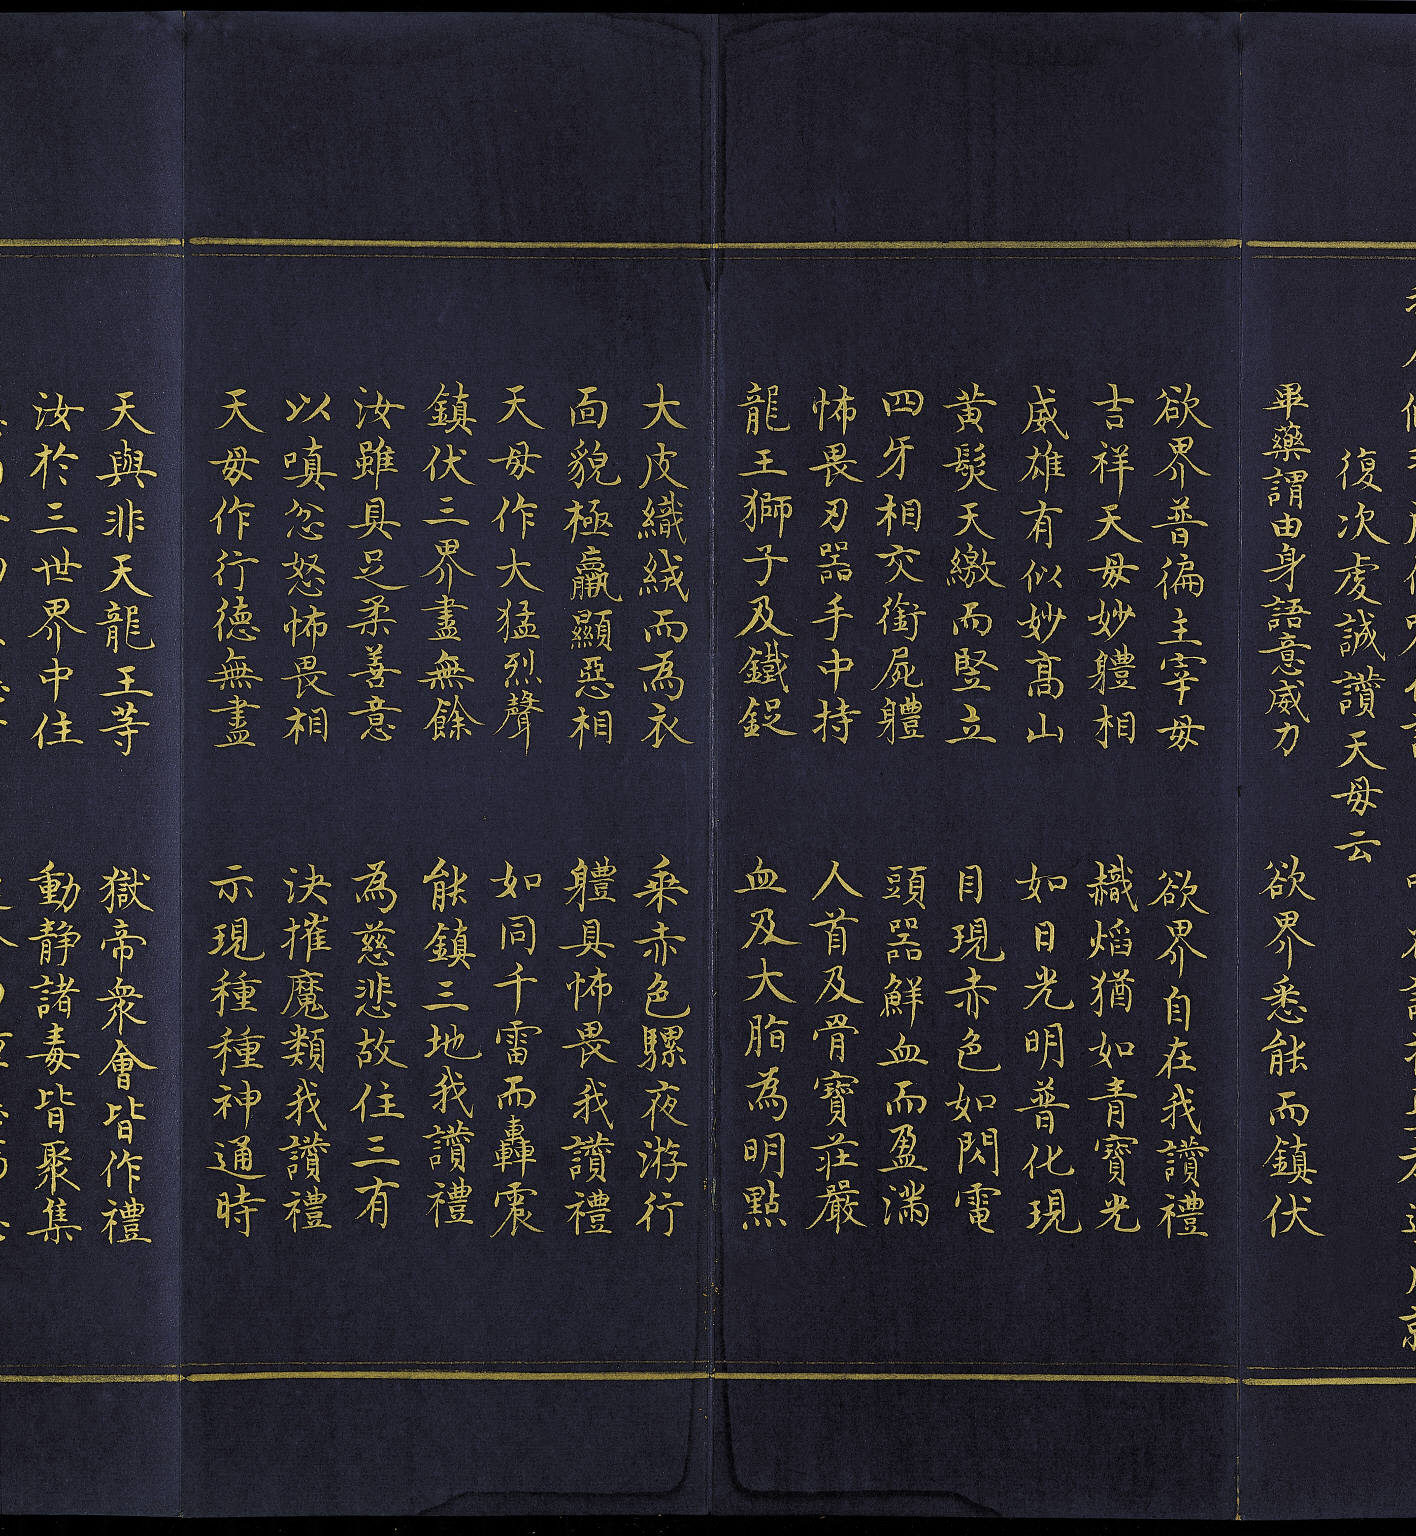 復次虔誠讚天母云
畢藥謂由身語意威力　欲界悉能而鎮伏
欲界普徧主宰母　欲界自在我讚禮
吉祥天母妙軆相　熾焰猶如青寶光
威雄有似妙高山　如日光明普化現
黃髮天繳而豎立　目現赤色如閃電
四牙相交銜屍軆　頭器鮮血而盈滿
怖畏刃器手中持　人首及骨寶莊嚴
龍王獅子及鐵鋜　血及大脂為明點
大皮織絨而為衣　乘赤色騾夜游行
面貌極羸顯惡相　軆具怖畏我讚禮
天母作大猛烈聲　如同千雷而轟震
鎮伏三界盡無餘　能鎮三地我讚禮
汝雖具足柔善意　為慈悲故住三有
以嗔忿怒怖畏相　決摧魔類我讚禮
天母作行德無盡　示現種種神通時
天與非天龍王等　獄帝衆會皆作禮
汝於三世界中住　動靜諸毒皆聚集